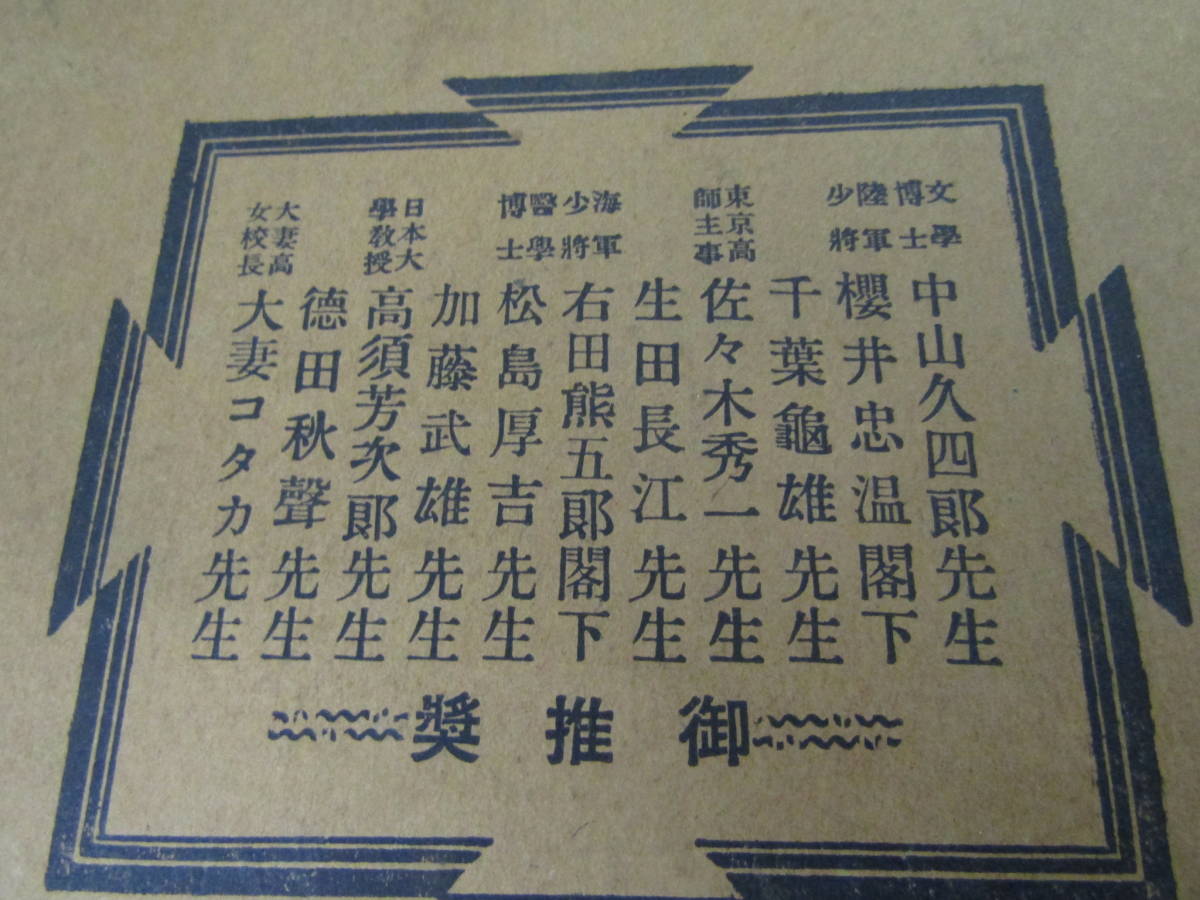 文學博士 中山久四郎先生
陸軍少將 櫻井忠温閣下
千葉龜雄先生
東京高師主事 佐々木秀一先生
生田長江先生
海軍少將 右田熊五郎閣下
醫學博士 松島厚吉先生
加藤武雄先生
日本大學教授 高須芳次郎先生
德田秋聲先生
大妻高女校長 大妻コタカ先生
御推奬